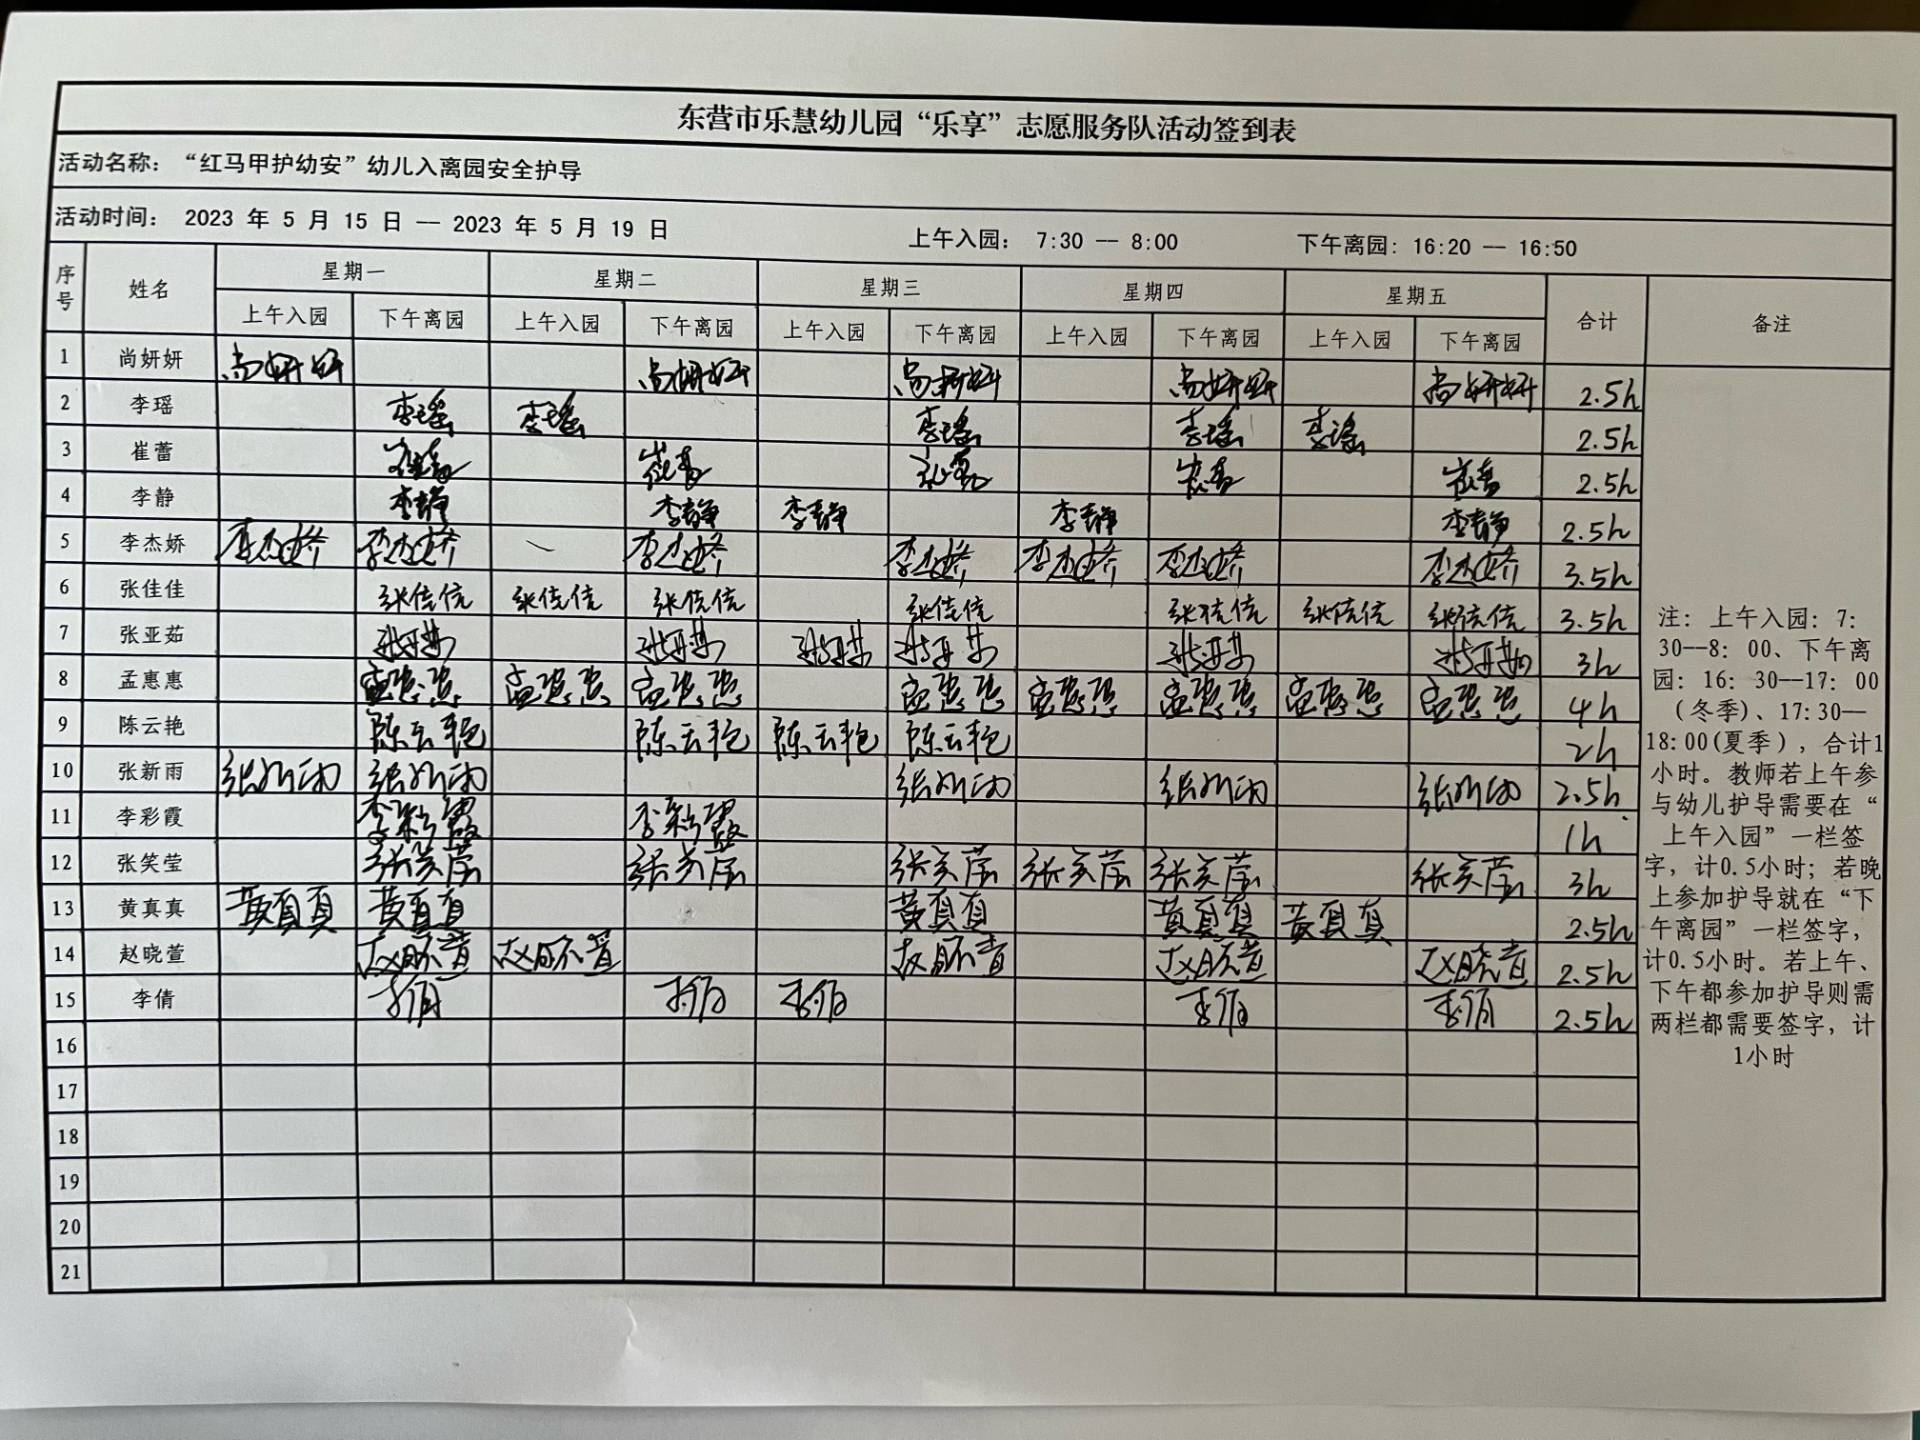 东营市乐慧幼儿园“乐享”志愿服务队活动签到表
活动名称：“红马甲护幼安”幼儿入离园安全护导
活动时间： 2023 年 5 月 15 日 -- 2023 年 5 月 19 日 上午入园： 7:30 -- 8:00 下午离园：16:20 -- 16:50
序号 姓名 星期一 星期二 星期三 星期四 星期五 合计 备注
上午入园 下午离园 上午入园 下午离园 上午入园 下午离园 上午入园 下午离园 上午入园 下午离园
1 尚妍妍 尚妍妍 尚妍妍 尚妍妍 尚妍妍 尚妍妍 2.5h
2 李瑶 李瑶 李瑶 李瑶 李瑶 李瑶 2.5h
3 崔蕾 崔蕾 崔蕾 崔蕾 崔蕾 崔蕾 2.5h
4 李静 李静 李静 李静 李静 李静 2.5h
5 李杰娇 李杰娇 李杰娇 李杰娇 李杰娇 李杰娇 李杰娇 李杰娇 3.5h
6 张佳佳 张佳佳 张佳佳 张佳佳 张佳佳 张佳佳 张佳佳 张佳佳 3.5h
7 张亚茹 张亚茹 张亚茹 张亚茹 张亚茹 张亚茹 张亚茹 3h
8 孟惠惠 孟惠惠 孟惠惠 孟惠惠 孟惠惠 孟惠惠 孟惠惠 孟惠惠 孟惠惠 4h
9 陈云艳 陈云艳 陈云艳 陈云艳 陈云艳 2h
10 张新雨 张新雨 张新雨 张新雨 张新雨 张新雨 2.5h
11 李彩霞 李彩霞 李彩霞 1h
12 张笑莹 张笑莹 张笑莹 张笑莹 张笑莹 张笑莹 张笑莹 3h
13 黄真真 黄真真 黄真真 黄真真 黄真真 黄真真 2.5h
14 赵晓萱 赵晓萱 赵晓萱 赵晓萱 赵晓萱 赵晓萱 2.5h
15 李倩 李倩 李倩 李倩 李倩 李倩 2.5h
16
17
18
19
20
21
注：上午入园：7：
30--8：00、下午离
园：16：30--17：00
（冬季）、17:30--
18:00(夏季），合计1
小时。教师若上午参
与幼儿护导需要在“
上午入园”一栏签
字，计0.5小时；若晚
上参加护导就在“下
午离园”一栏签字，
计0.5小时。若上午、
下午都参加护导则需
两栏都需要签字，计
1小时